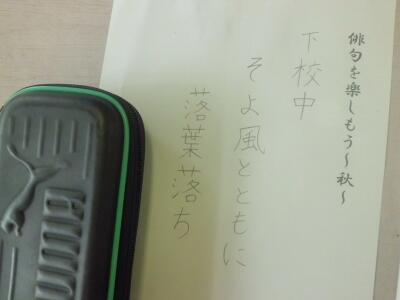 俳句を楽しもう～秋～
下校中
そよ風とともに
落葉落ち
PUMA